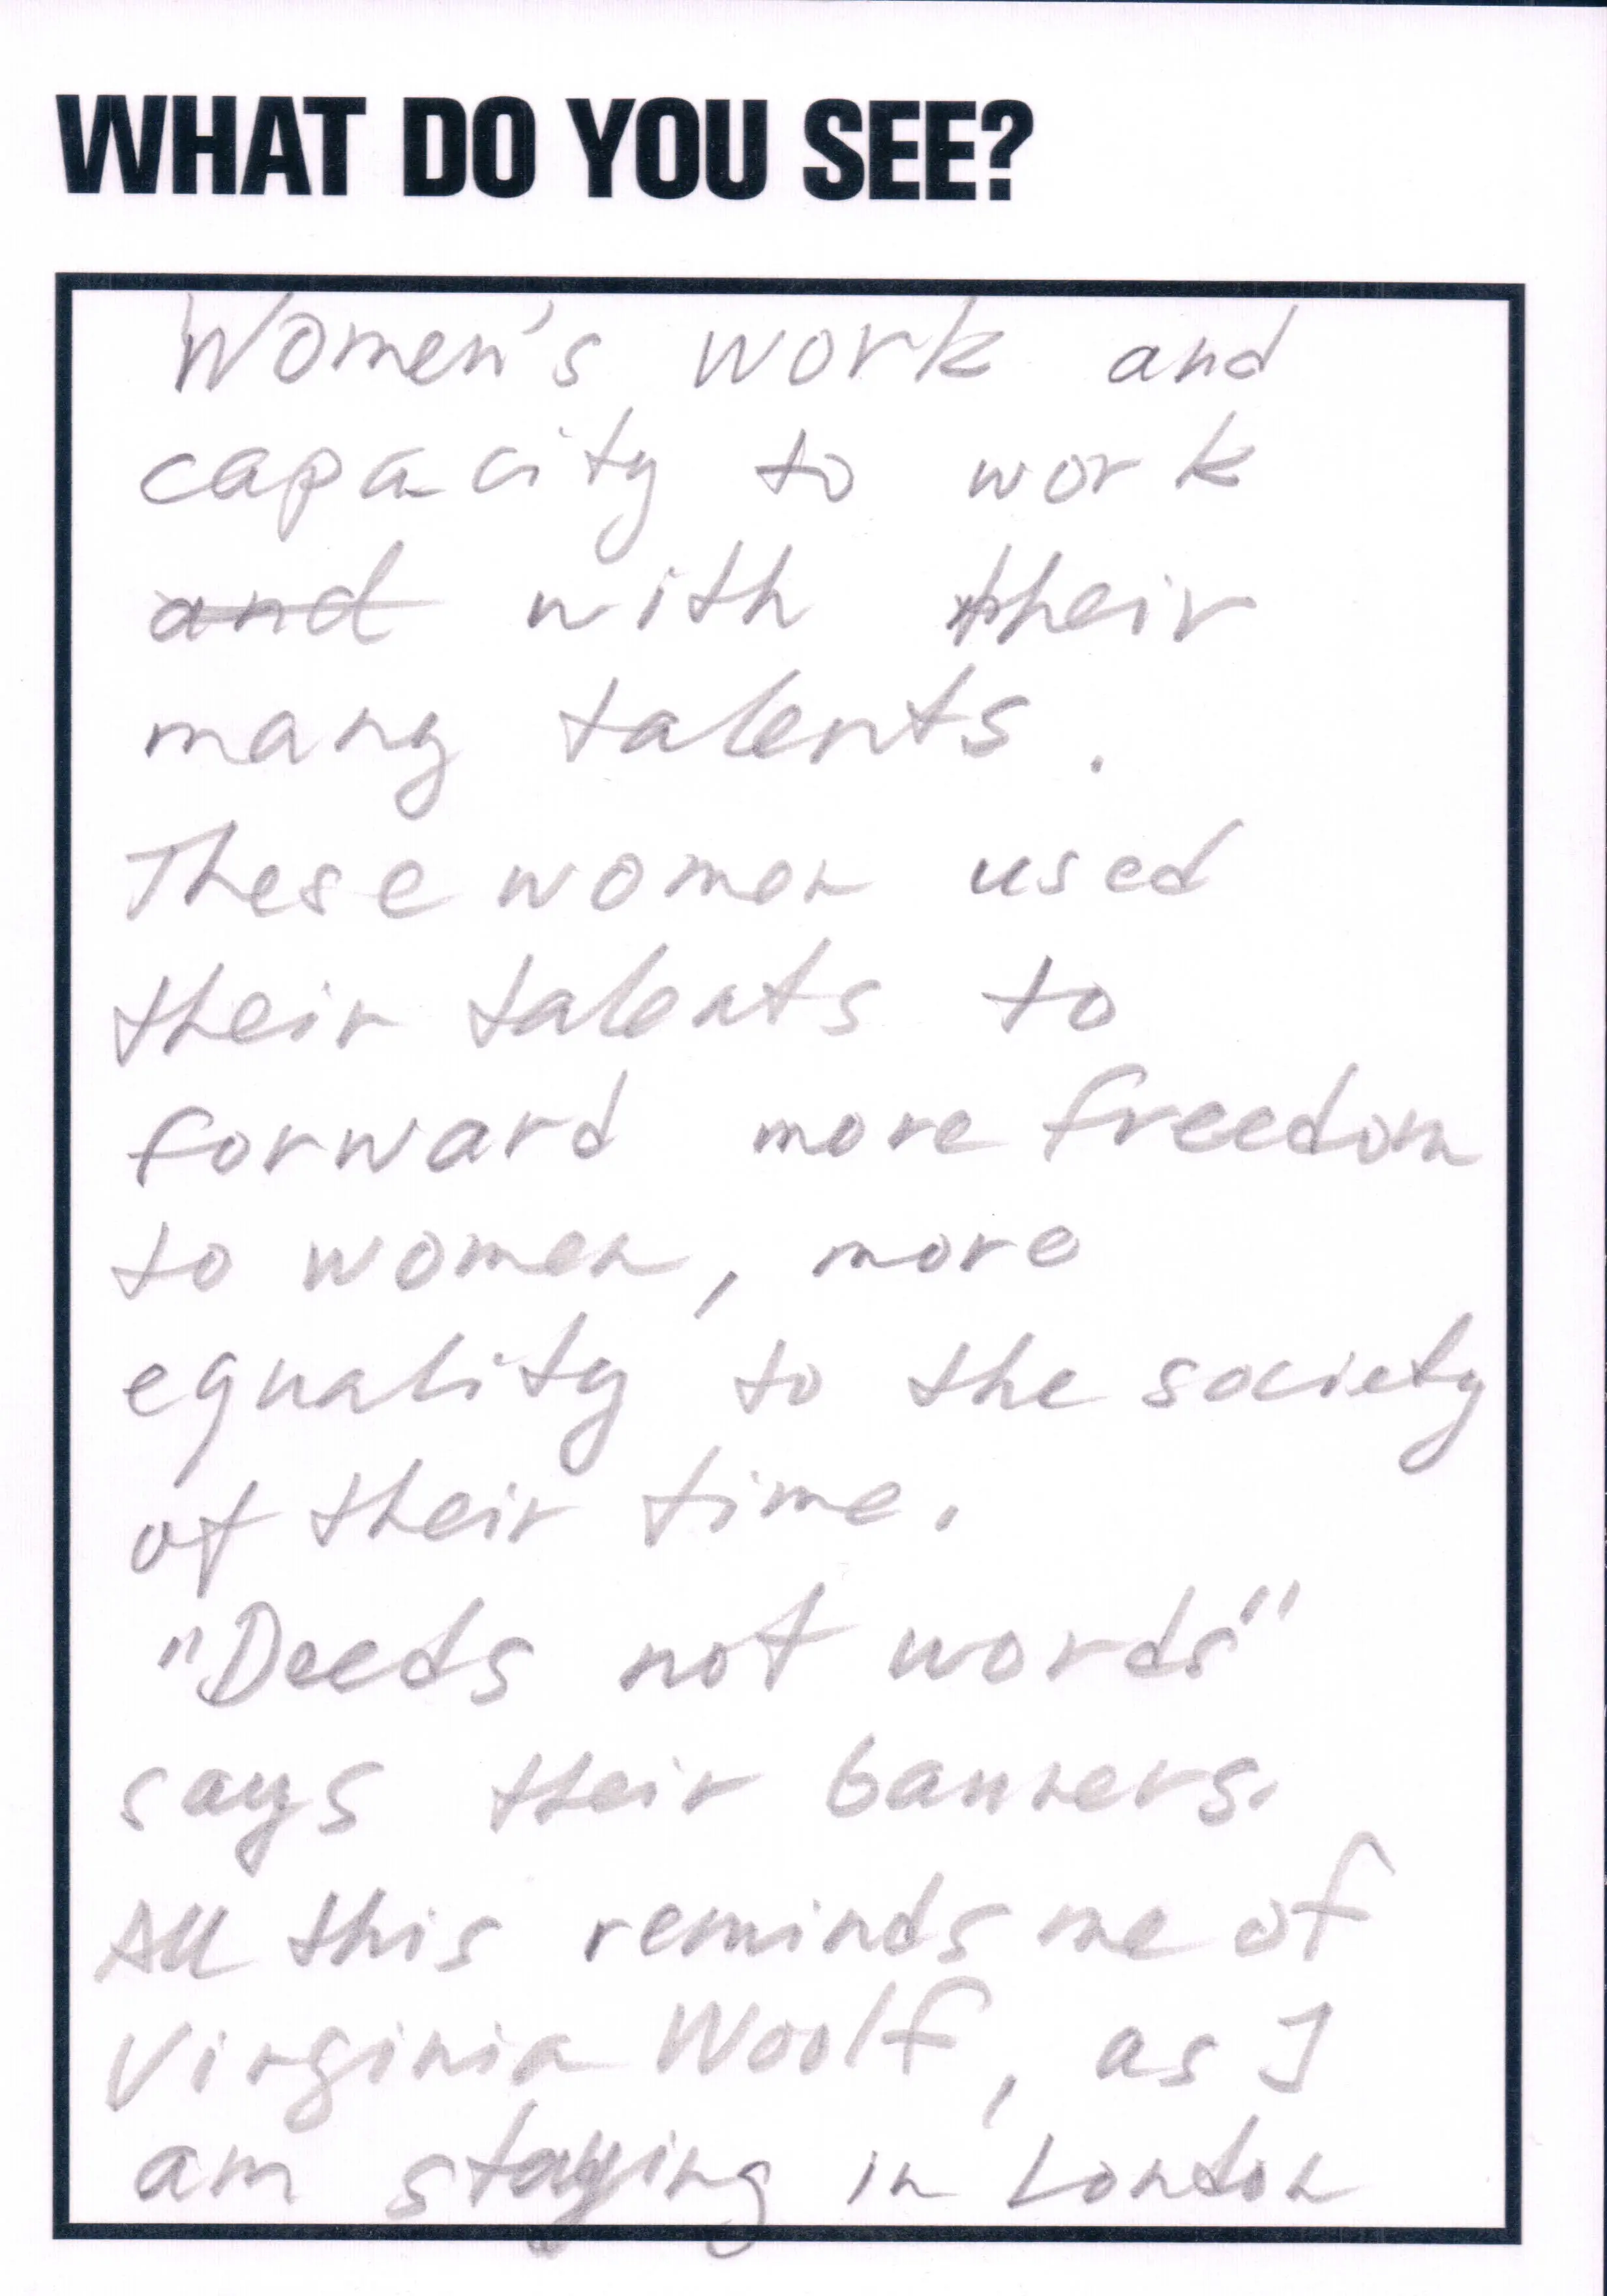 WHAT DO YOU SEE?
Women's work and
capacity to work
and with their
many talents.
These women used
their talents to
forward more freedom
to women, more
equality to the society
of their time.
"Deeds not words"
says their banners.
All this reminds me of
Virginia Woolf, as I
am staying in London